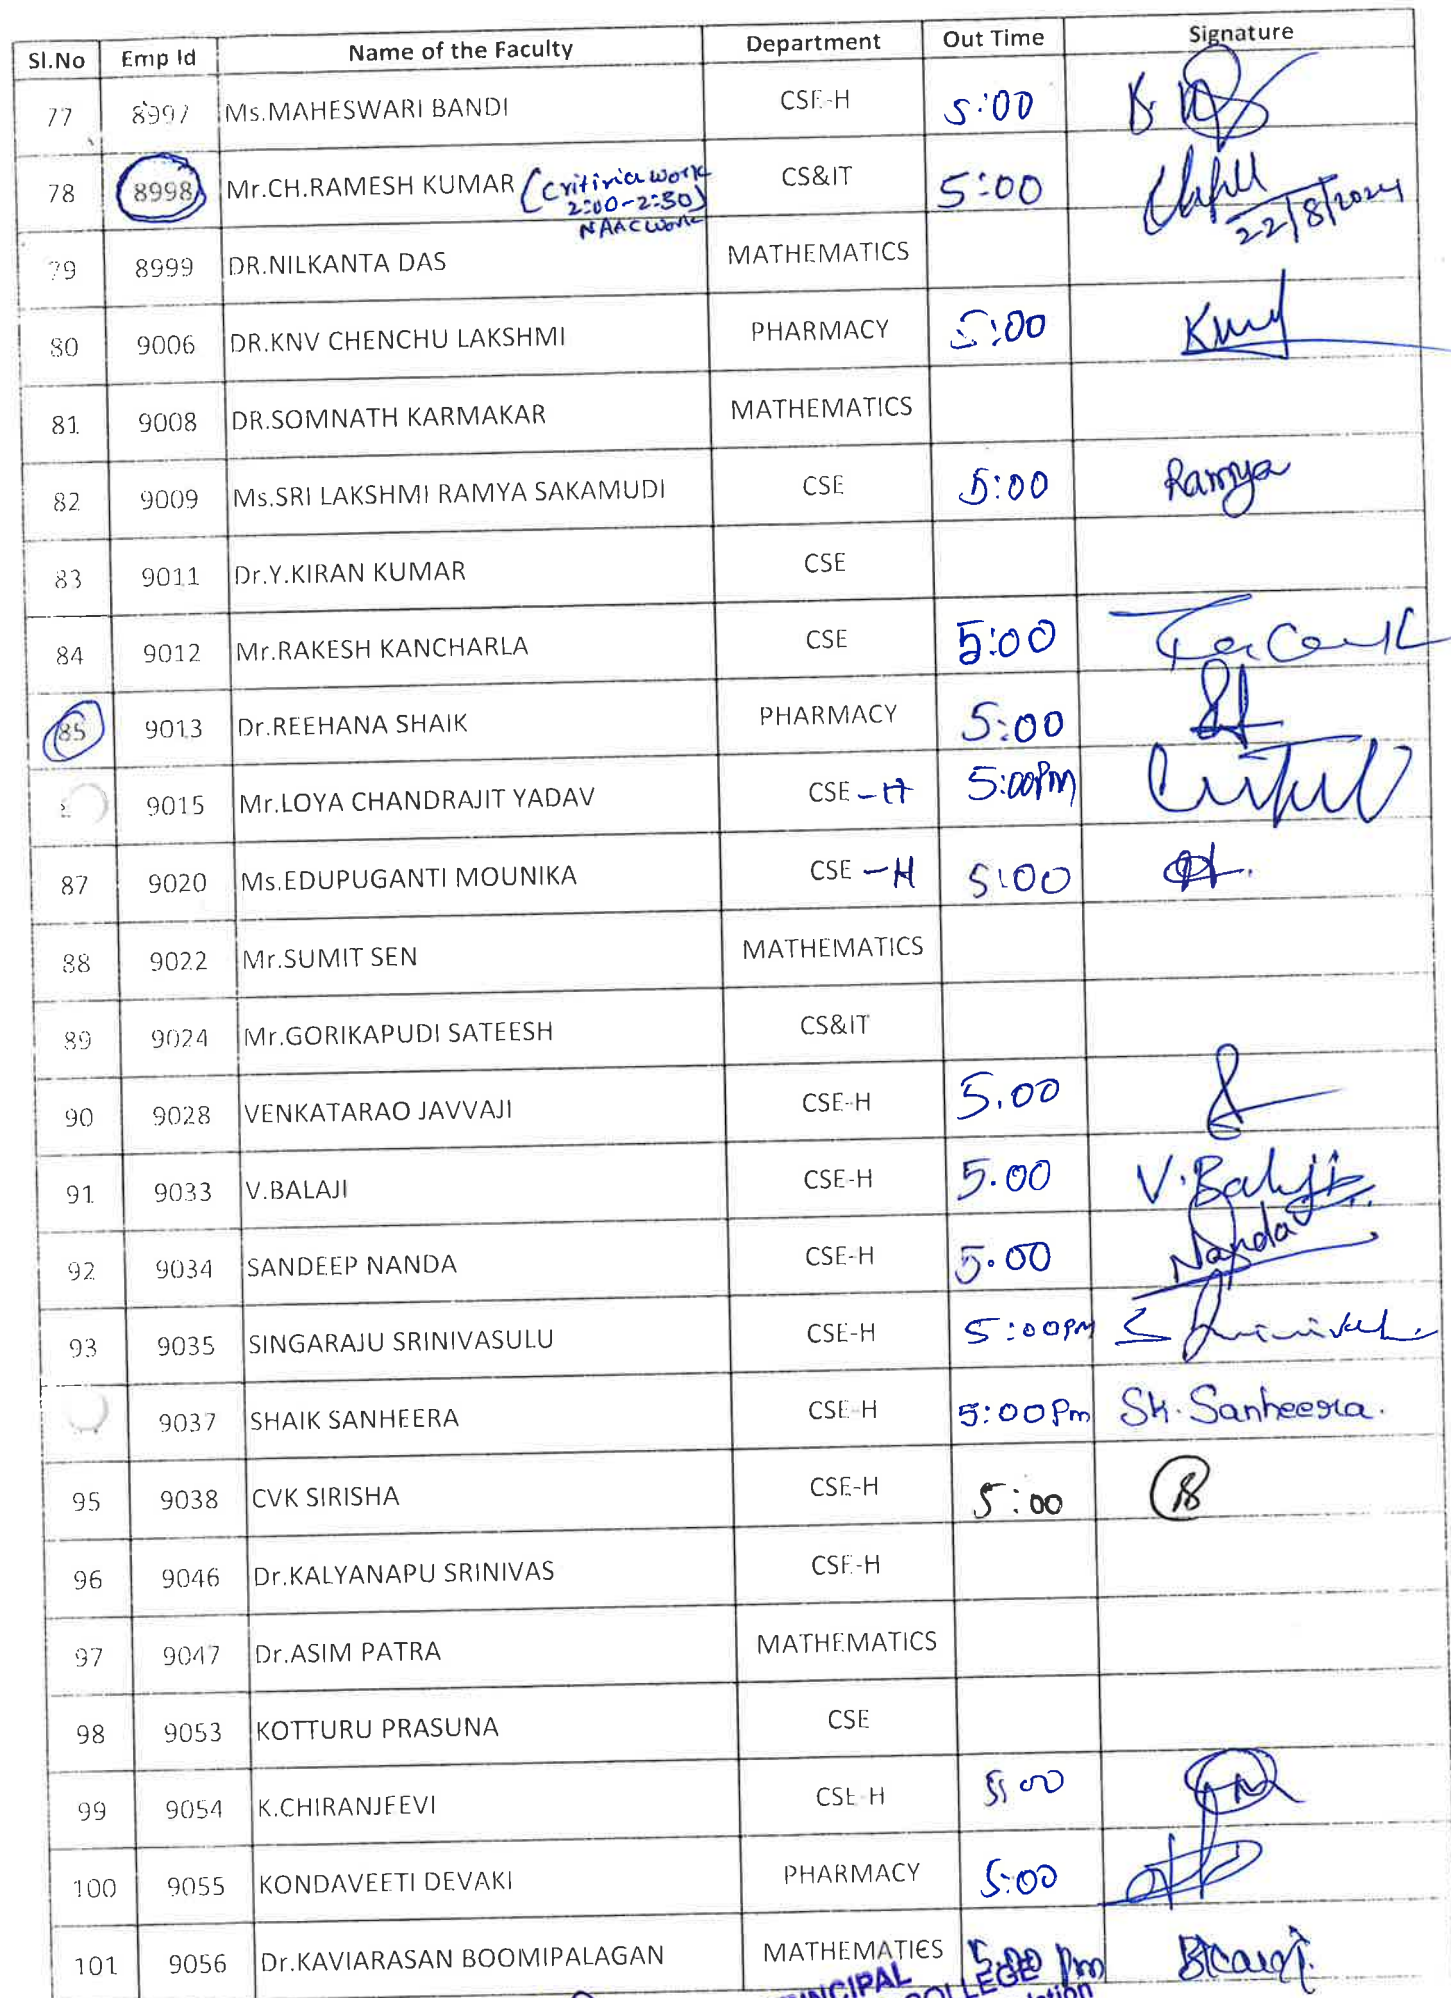 Sl.No Emp Id Name of the Faculty Department Out Time Signature
77 8997 Ms.MAHESWARI BANDI CSE-H 5:00
78 8998 Mr.CH.RAMESH KUMAR (Critiria work CS&IT 5:00
2:00-2:30)
NAAC work 22/8/2024
79 8999 DR.NILKANTA DAS MATHEMATICS
80 9006 DR.KNV CHENCHU LAKSHMI PHARMACY 5:00
81 9008 DR.SOMNATH KARMAKAR MATHEMATICS
82 9009 Ms.SRI LAKSHMI RAMYA SAKAMUDI CSE 5:00 Ramya
83 9011 Dr.Y.KIRAN KUMAR CSE
84 9012 Mr.RAKESH KANCHARLA CSE 5:00
85 9013 Dr.REEHANA SHAIK PHARMACY 5:00
9015 Mr.LOYA CHANDRAJIT YADAV CSE -H 5:00Pm
87 9020 Ms.EDUPUGANTI MOUNIKA CSE -H 5:00
88 9022 Mr.SUMIT SEN MATHEMATICS
89 9024 Mr.GORIKAPUDI SATEESH CS&IT
90 9028 VENKATARAO JAVVAJI CSE-H 5.00
91 9033 V.BALAJI CSE-H 5.00 V.Balaji
92 9034 SANDEEP NANDA CSE-H 5.00 Nanda
93 9035 SINGARAJU SRINIVASULU CSE-H 5:00PM
9037 SHAIK SANHEERA CSE-H 5:00Pm Sk. Sanheera.
95 9038 CVK SIRISHA CSE-H 5:00
96 9046 Dr.KALYANAPU SRINIVAS CSE-H
97 9047 Dr.ASIM PATRA MATHEMATICS
98 9053 KOTTURU PRASUNA CSE
99 9054 K.CHIRANJEEVI CSE-H 5:00
100 9055 KONDAVEETI DEVAKI PHARMACY 5:00
101 9056 Dr.KAVIARASAN BOOMIPALAGAN MATHEMATIES 5:00 Pm
COLLEGE